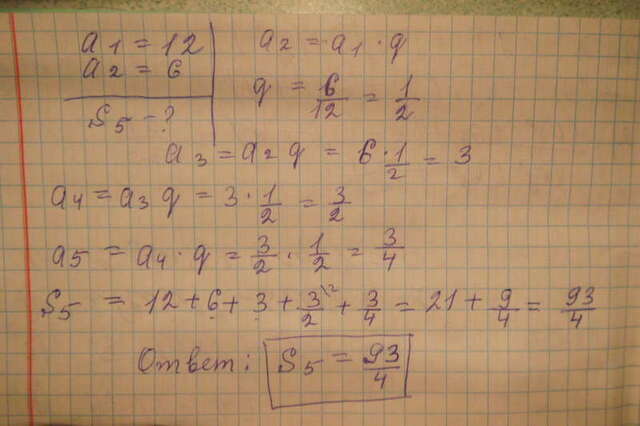 a1 = 12
a2 = 6
S5 - ?
a2 = a1 · q
q = 6/12 = 1/2
a3 = a2 q = 6 · 1/2 = 3
a4 = a3 q = 3 · 1/2 = 3/2
a5 = a4 · q = 3/2 · 1/2 = 3/4
S5 = 12 + 6 + 3 + 3\2/2 + 3/4 = 21 + 9/4 = 93/4
Ответ: S5 = 93/4